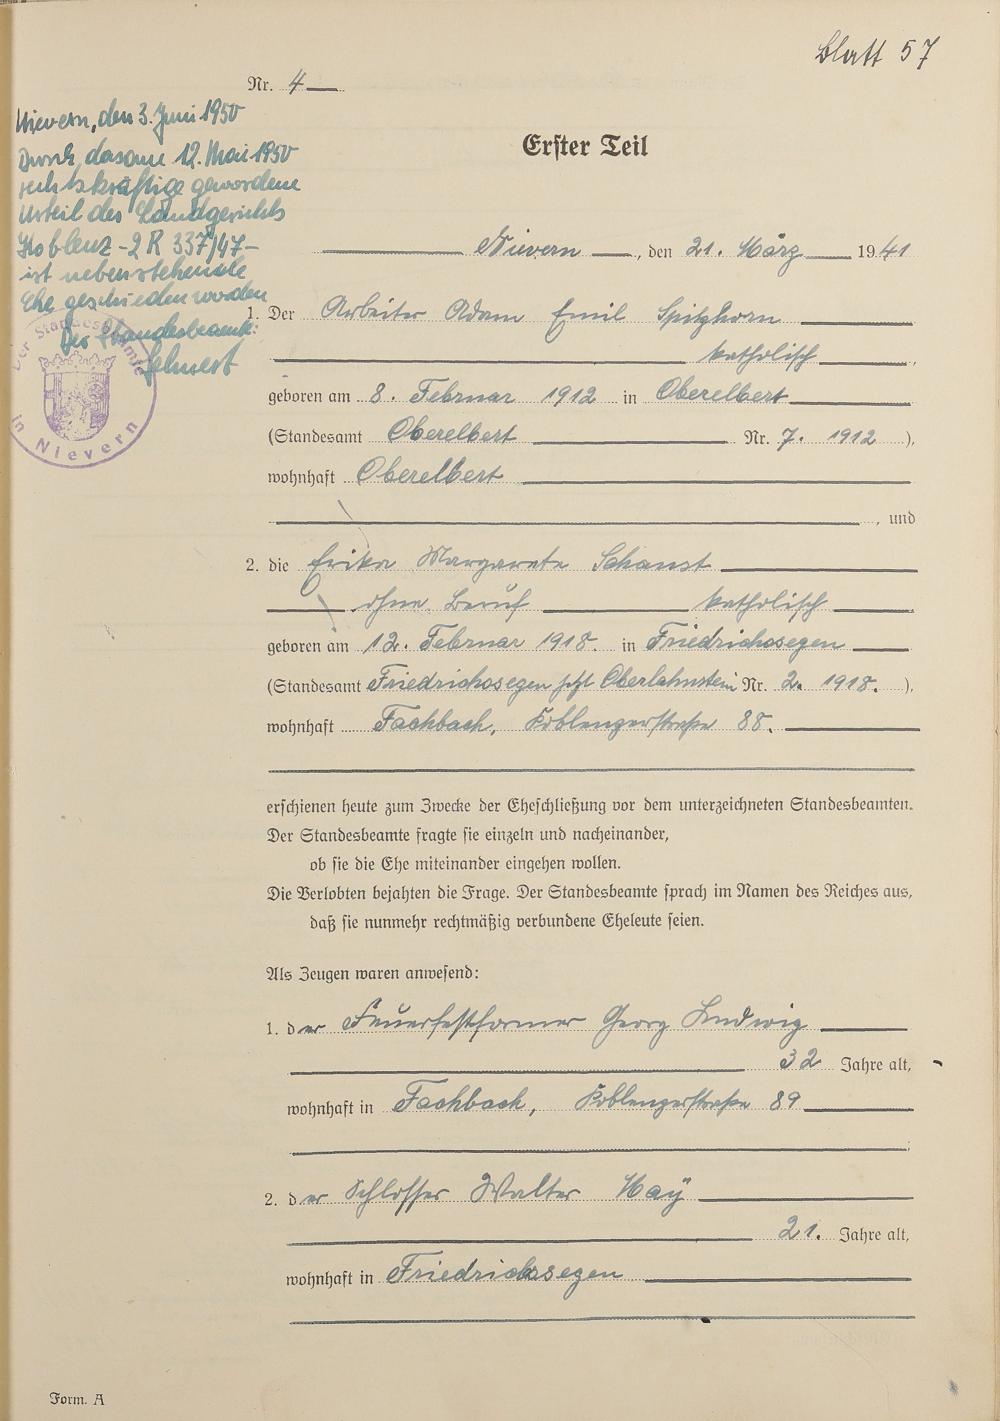 Blatt 57
Nr. 4
Nievern, den 3. Juni 1950
Durch das am 12. Mai 1950
rechtskräftige gewordene
Urteil des Landgerichts
Koblenz - 2 R 337/47 -
ist nebenstehende
Ehe geschieden worden
Der Standesbeamte:
Der Standesbeamte
in Nievern
Erster Teil
Nievern, den 21. März 1941
1. Der Arbeiter Adam Emil Spitzhorn
katholisch,
geboren am 8. Februar 1912 in Oberelbert
(Standesamt Oberelbert Nr. 7. 1912),
wohnhaft Oberelbert
, und
2. die Erika Margarete Schanst
ohne Beruf katholisch
geboren am 12. Februar 1918. in Friedrichssegen
(Standesamt Friedrichssegen jetzt Oberlahnstein Nr. 2. 1918.),
wohnhaft Fachbach, Koblenzerstraße 88.
erschienen heute zum Zwecke der Eheschließung vor dem unterzeichneten Standesbeamten.
Der Standesbeamte fragte sie einzeln und nacheinander,
ob sie die Ehe miteinander eingehen wollen.
Die Verlobten bejahten die Frage. Der Standesbeamte sprach im Namen des Reiches aus,
daß sie nunmehr rechtmäßig verbundene Eheleute seien.
Als Zeugen waren anwesend:
1. der Feuerfestformer Georg Ludwig
32 Jahre alt,
wohnhaft in Fachbach, Koblenzerstraße 89
2. der Schlosser Walter May
21. Jahre alt,
wohnhaft in Friedrichssegen
Form. A